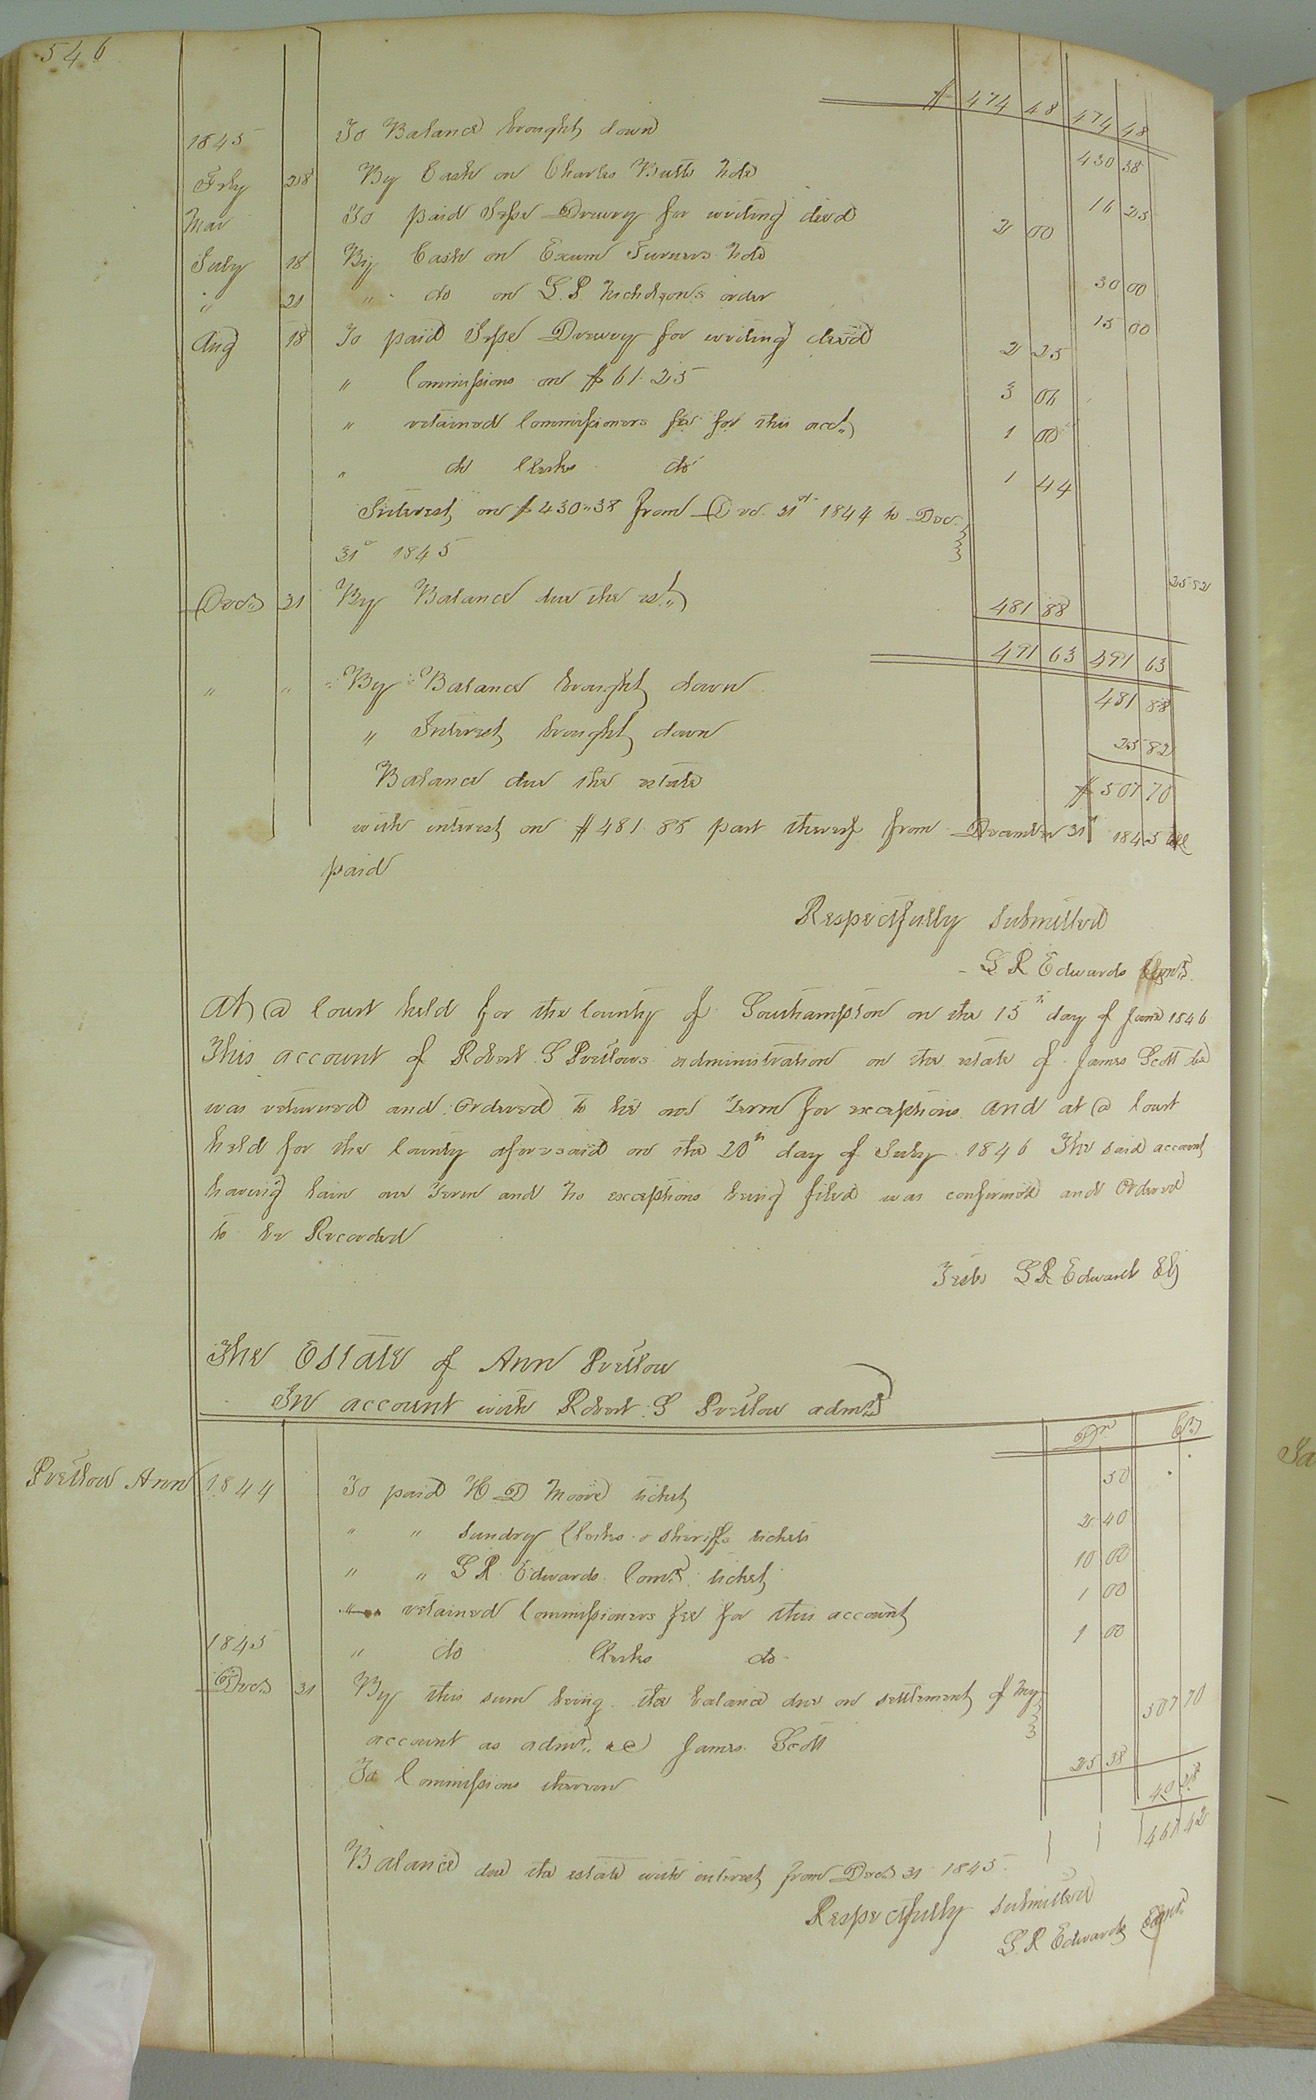 546
$ 474 48 474 48
1845 To Balance brought down 430 38
Feby 28 By Cash on Charles Butts note 16 25
Mar To paid Jesse Drewry for writing deed 2 00
July 18 By Cash on Exum Turners note 30 00
" 21 " do on G. P. order 15 00
Aug 18 To paid Jesse Drewry for writing deed 2 25
" Commissions on $61.25 3 06
" retained Commissioners fee for this acct. 1 00
" do Clerks do 1 44
Interest on $430.38 from Dec. 31st 1844 to Dec.
31st 1845 25 82
Decr 31 By Balance due the est. 481 88
491 63 491 63
" " By Balance brought down 481 88
" Interest brought down 25 82
Balance due the estate $ 507 70
with interest on $481.88 part thereof from December 31st 1845 till
paid
Respectfully Submitted
L R Edwards Comr.
At a Court held for the County of Southampton on the 15th day of June 1846
This account of Robert S Pretlows administration on the estate of James Scott decd
was returned and Ordered to lie one Term for exceptions and at a Court
held for the County aforesaid on the 20th day of July 1846 The said account
having lain one Term and no exceptions being filed was confirmed and Ordered
to be Recorded
Teste L R Edwards Clk
The Estate of Ann Pretlow
In account with Robert S Pretlow admr.
Dr. Cr.
Pretlow Ann 1844 To paid H D Moore ticket 50
" " Sundry Clerks & Sheriffs tickets 2 40
" " L R Edwards Comr. ticket 10 00
" retained Commissioners fee for this account 1 00
1845 " do Clerks do 1 00
Decr 31 By this sum being the balance due on settlement of my
account as admr. of James Scott 507 70
To Commissions thereon 25 38
40 28
467 42
Balance due the estate with interest from Decr 31 1845
Respectfully Submitted
L. R Edwards Comr.